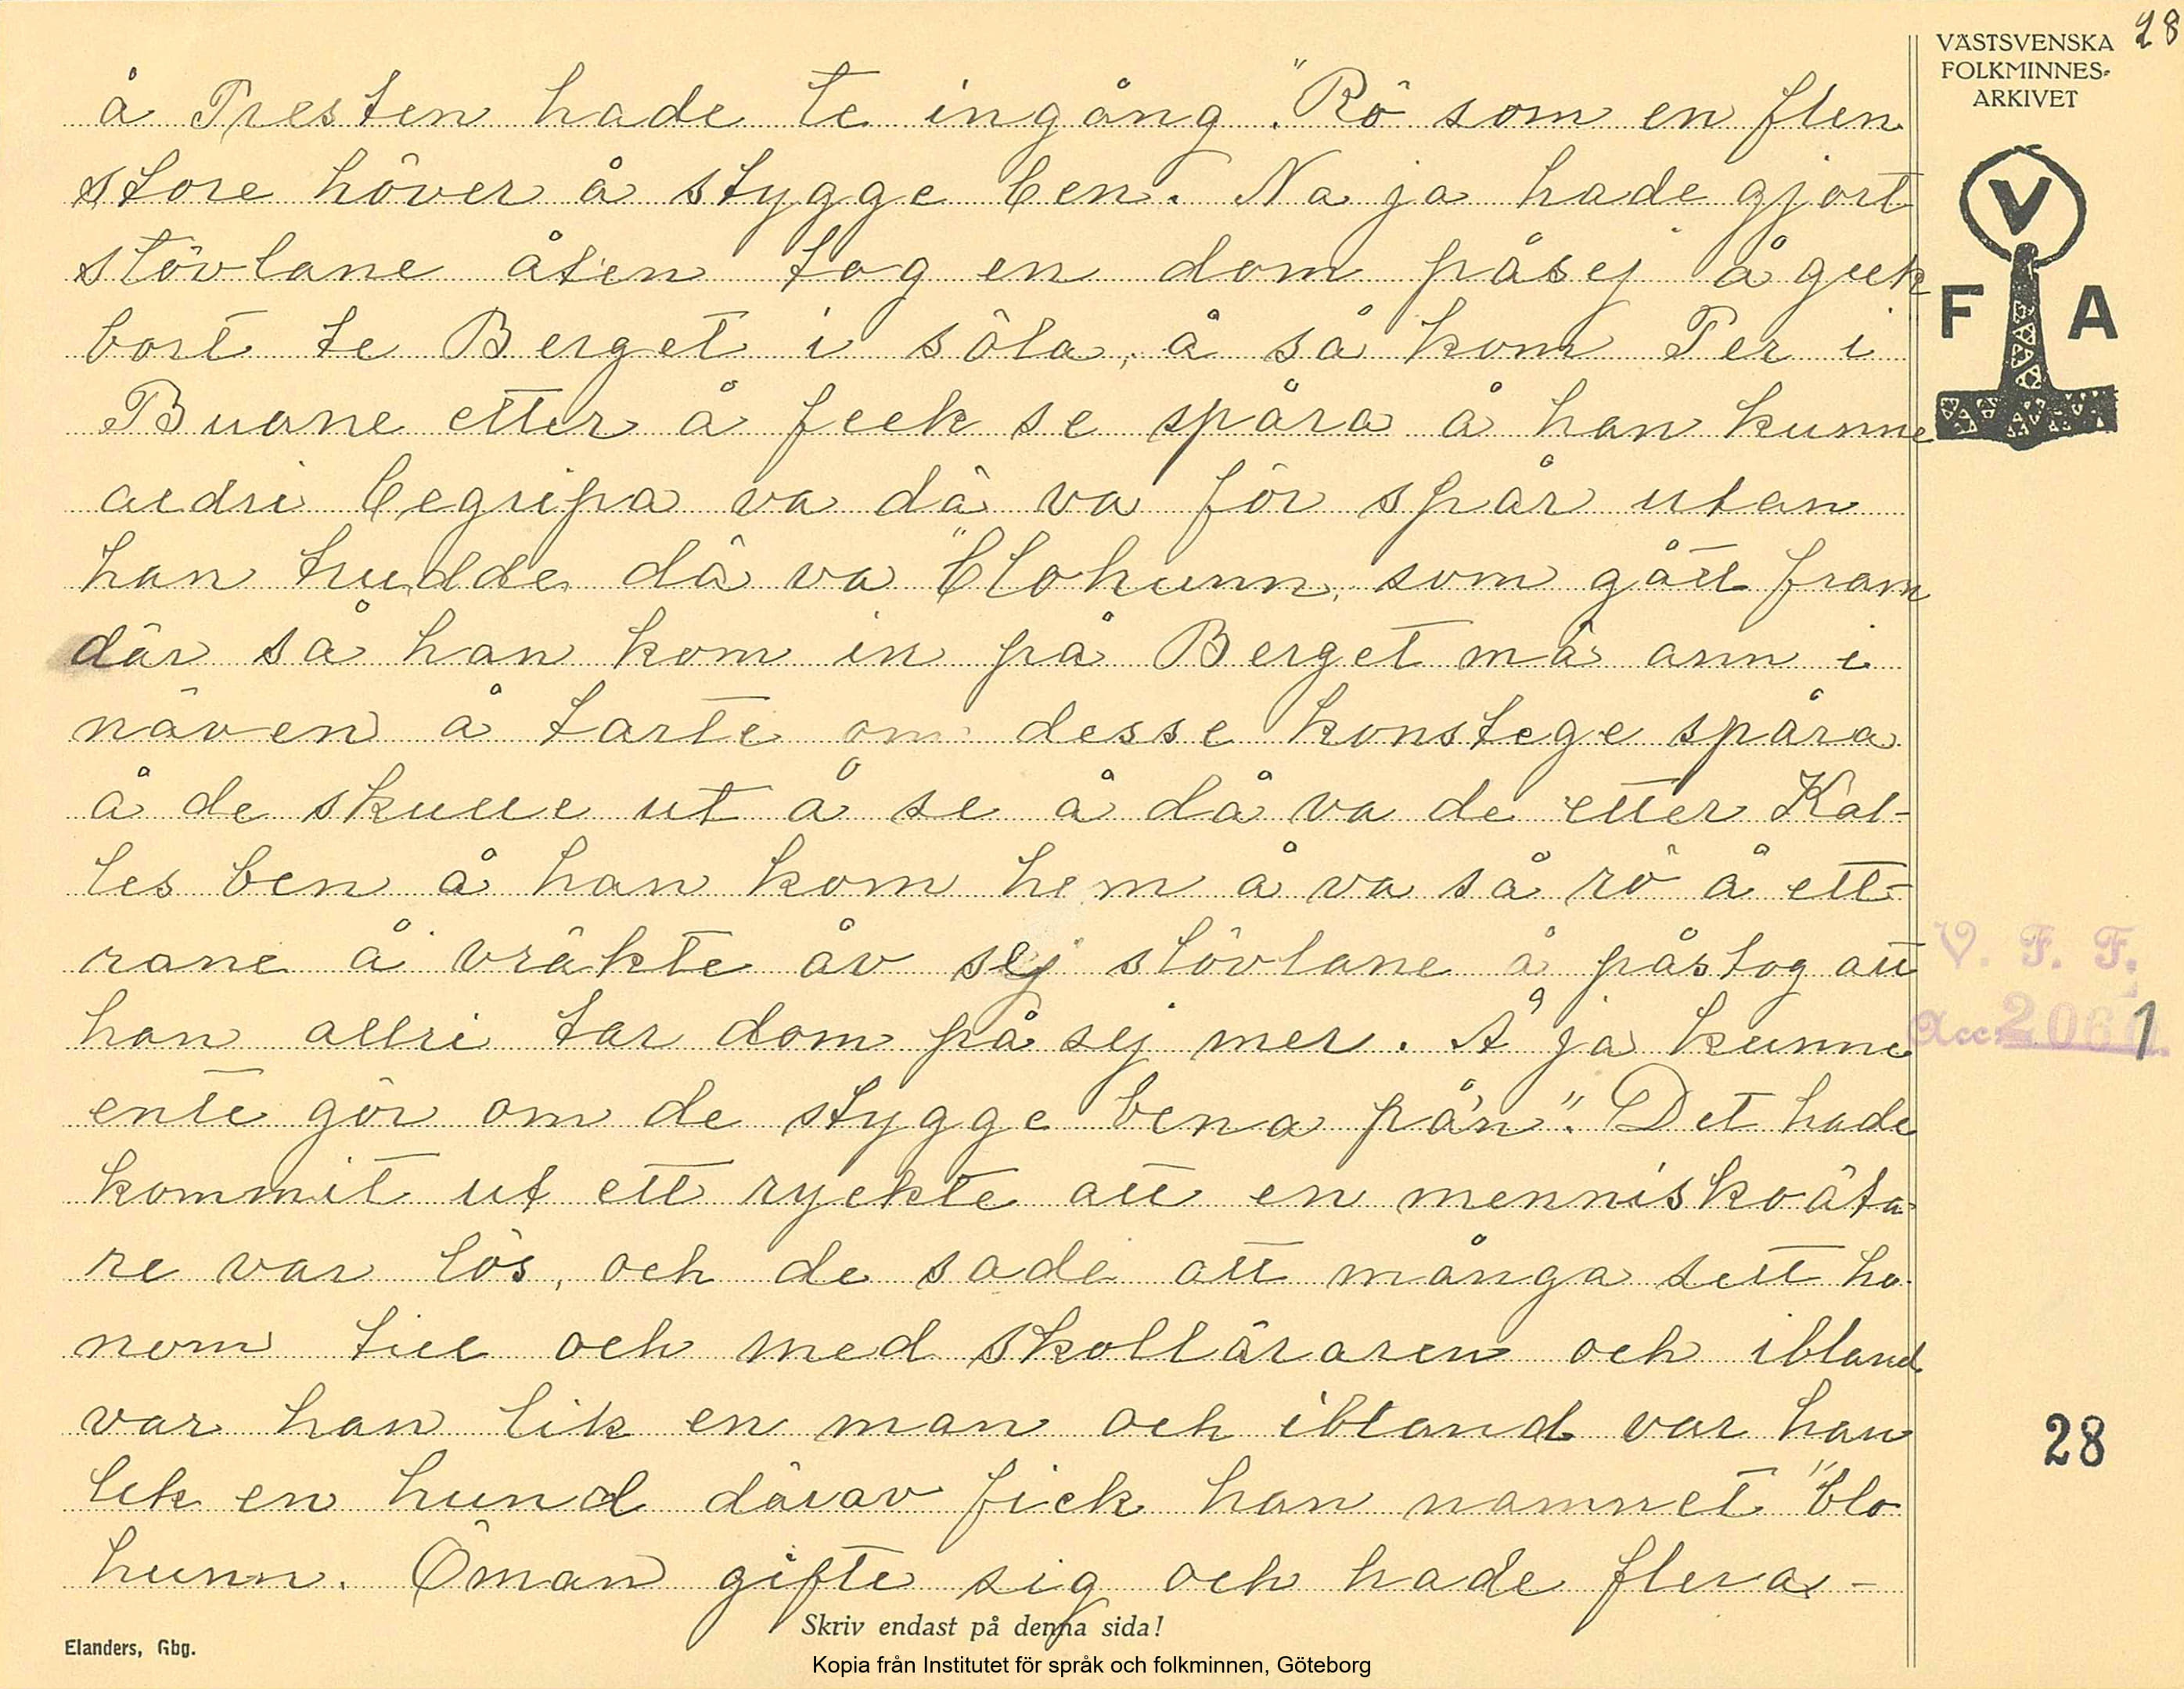 28
VÄSTSVENSKA
FOLKMINNES-
ARKIVET
V
F A
å Presten hade te ingång. "Rö som en flen
store höver å stygge ben. Na ja hade gjort
stövlane åt'en tog en dom påsej å geek
bort te Berget i söla, å så kom Per i
Buane etter å feek se spåra å han kunne
aldri begripa va dä va för spår utan
han trudde dä va "blohunn, som gått fram
där så han kom in på Berget mä ann i
näven å tarte om desse konstege spåra
å de skulle ut å se å då va de etter Kal-
les ben å han kom hem å va så rö å ett-
rane å vräkte åv sej stövlane å påstog att
han allri tar dom på sej mer. Å ja kunne
ente gör om de stygge bena på'n". Det hade
kommit ut ett ryckte att en menniskoäta-
re var lös, och de sade att många sett ho-
nom till och med skolläraren och ibland
var han lik en man och ibland var han
lik en hund därav fick han namnet "blo
hunn. Öman gifte sig och hade flera-
V. F. F.
Acc. 2061
28
Skriv endast på denna sida!
Elanders, Gbg.
Kopia från Institutet för språk och folkminnen, Göteborg